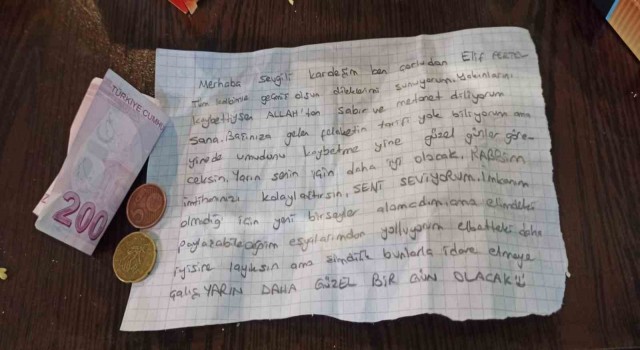 TÜRKİYE CUMHU
200
Merhaba sevgili kardeşim ben çorludan Elif
Tüm kalbimle geçmiş olsun dileklerimi sunuyorum. Yakınlarını
kaybettiysen ALLAH'tan sabır ve metanet diliyorum
sana. Başınıza gelen felaketin tarifi yok biliyorum ama
yinede umudunu kaybetme yine güzel günler göre-
ceksin. Yarın senin için daha iyi olacak. RABBim
imtihanınızı kolaylaştırsın. SENİ SEVİYORUM. İmkanım
olmadığı için yeni birşeyler alamadım, ama elimdeki
paylaşabileceğim eşyalarımdan yolluyorum elbetteki daha
iyisine layıksın ama şimdilik bunlarla idare etmeye
çalış. YARIN DAHA GÜZEL BİR GÜN OLACAK